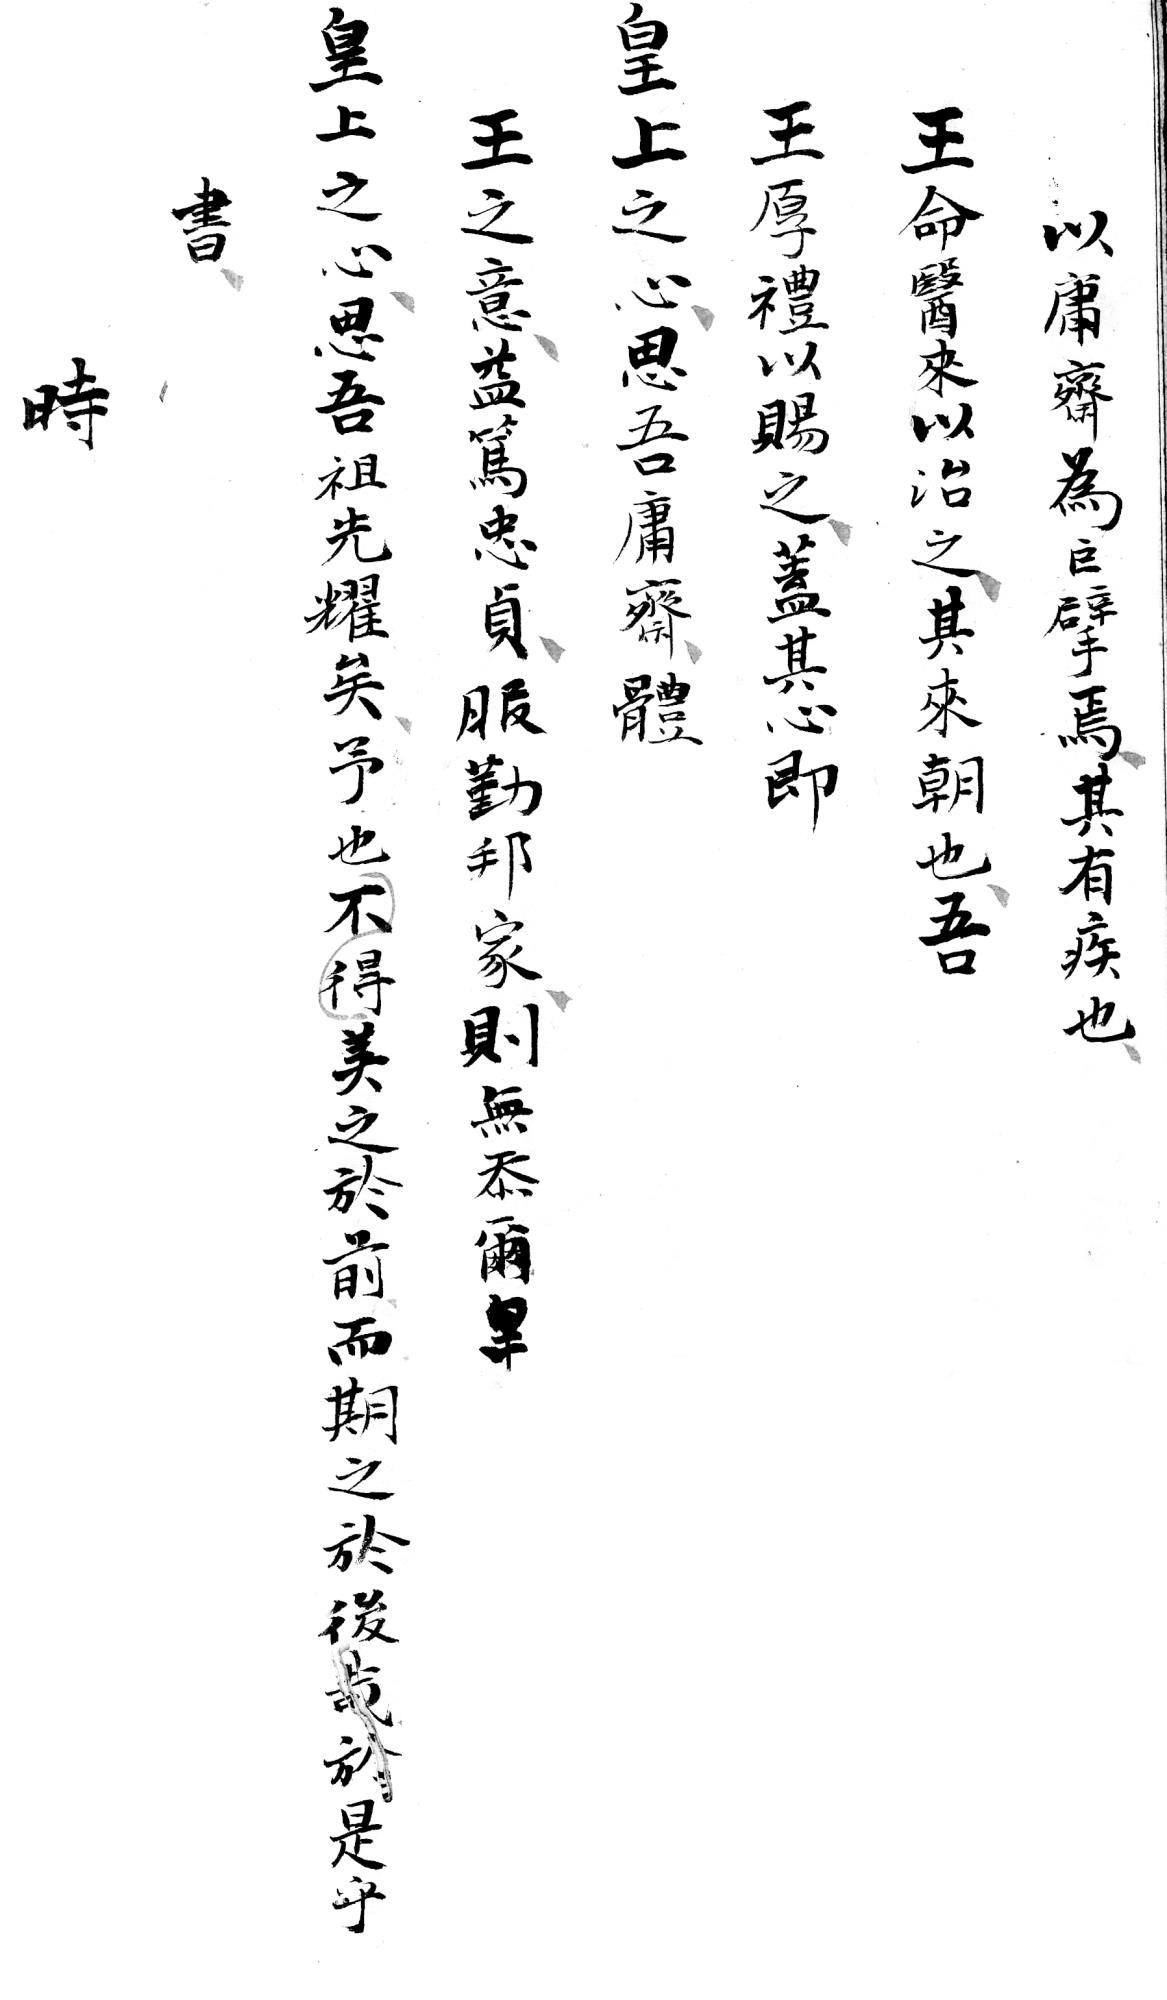 以庸齋為巨擘焉、其有疾也、
王命醫來以治之、其來朝也、吾
王厚禮以賜之、蓋其心即
皇上之心、思吾庸齋、體
王之意、益篤忠貞、服勤邦家、則無忝爾皇
皇上之心、思吾祖光耀矣、予也不得美之於前而期之於後哉於是乎
書、
時